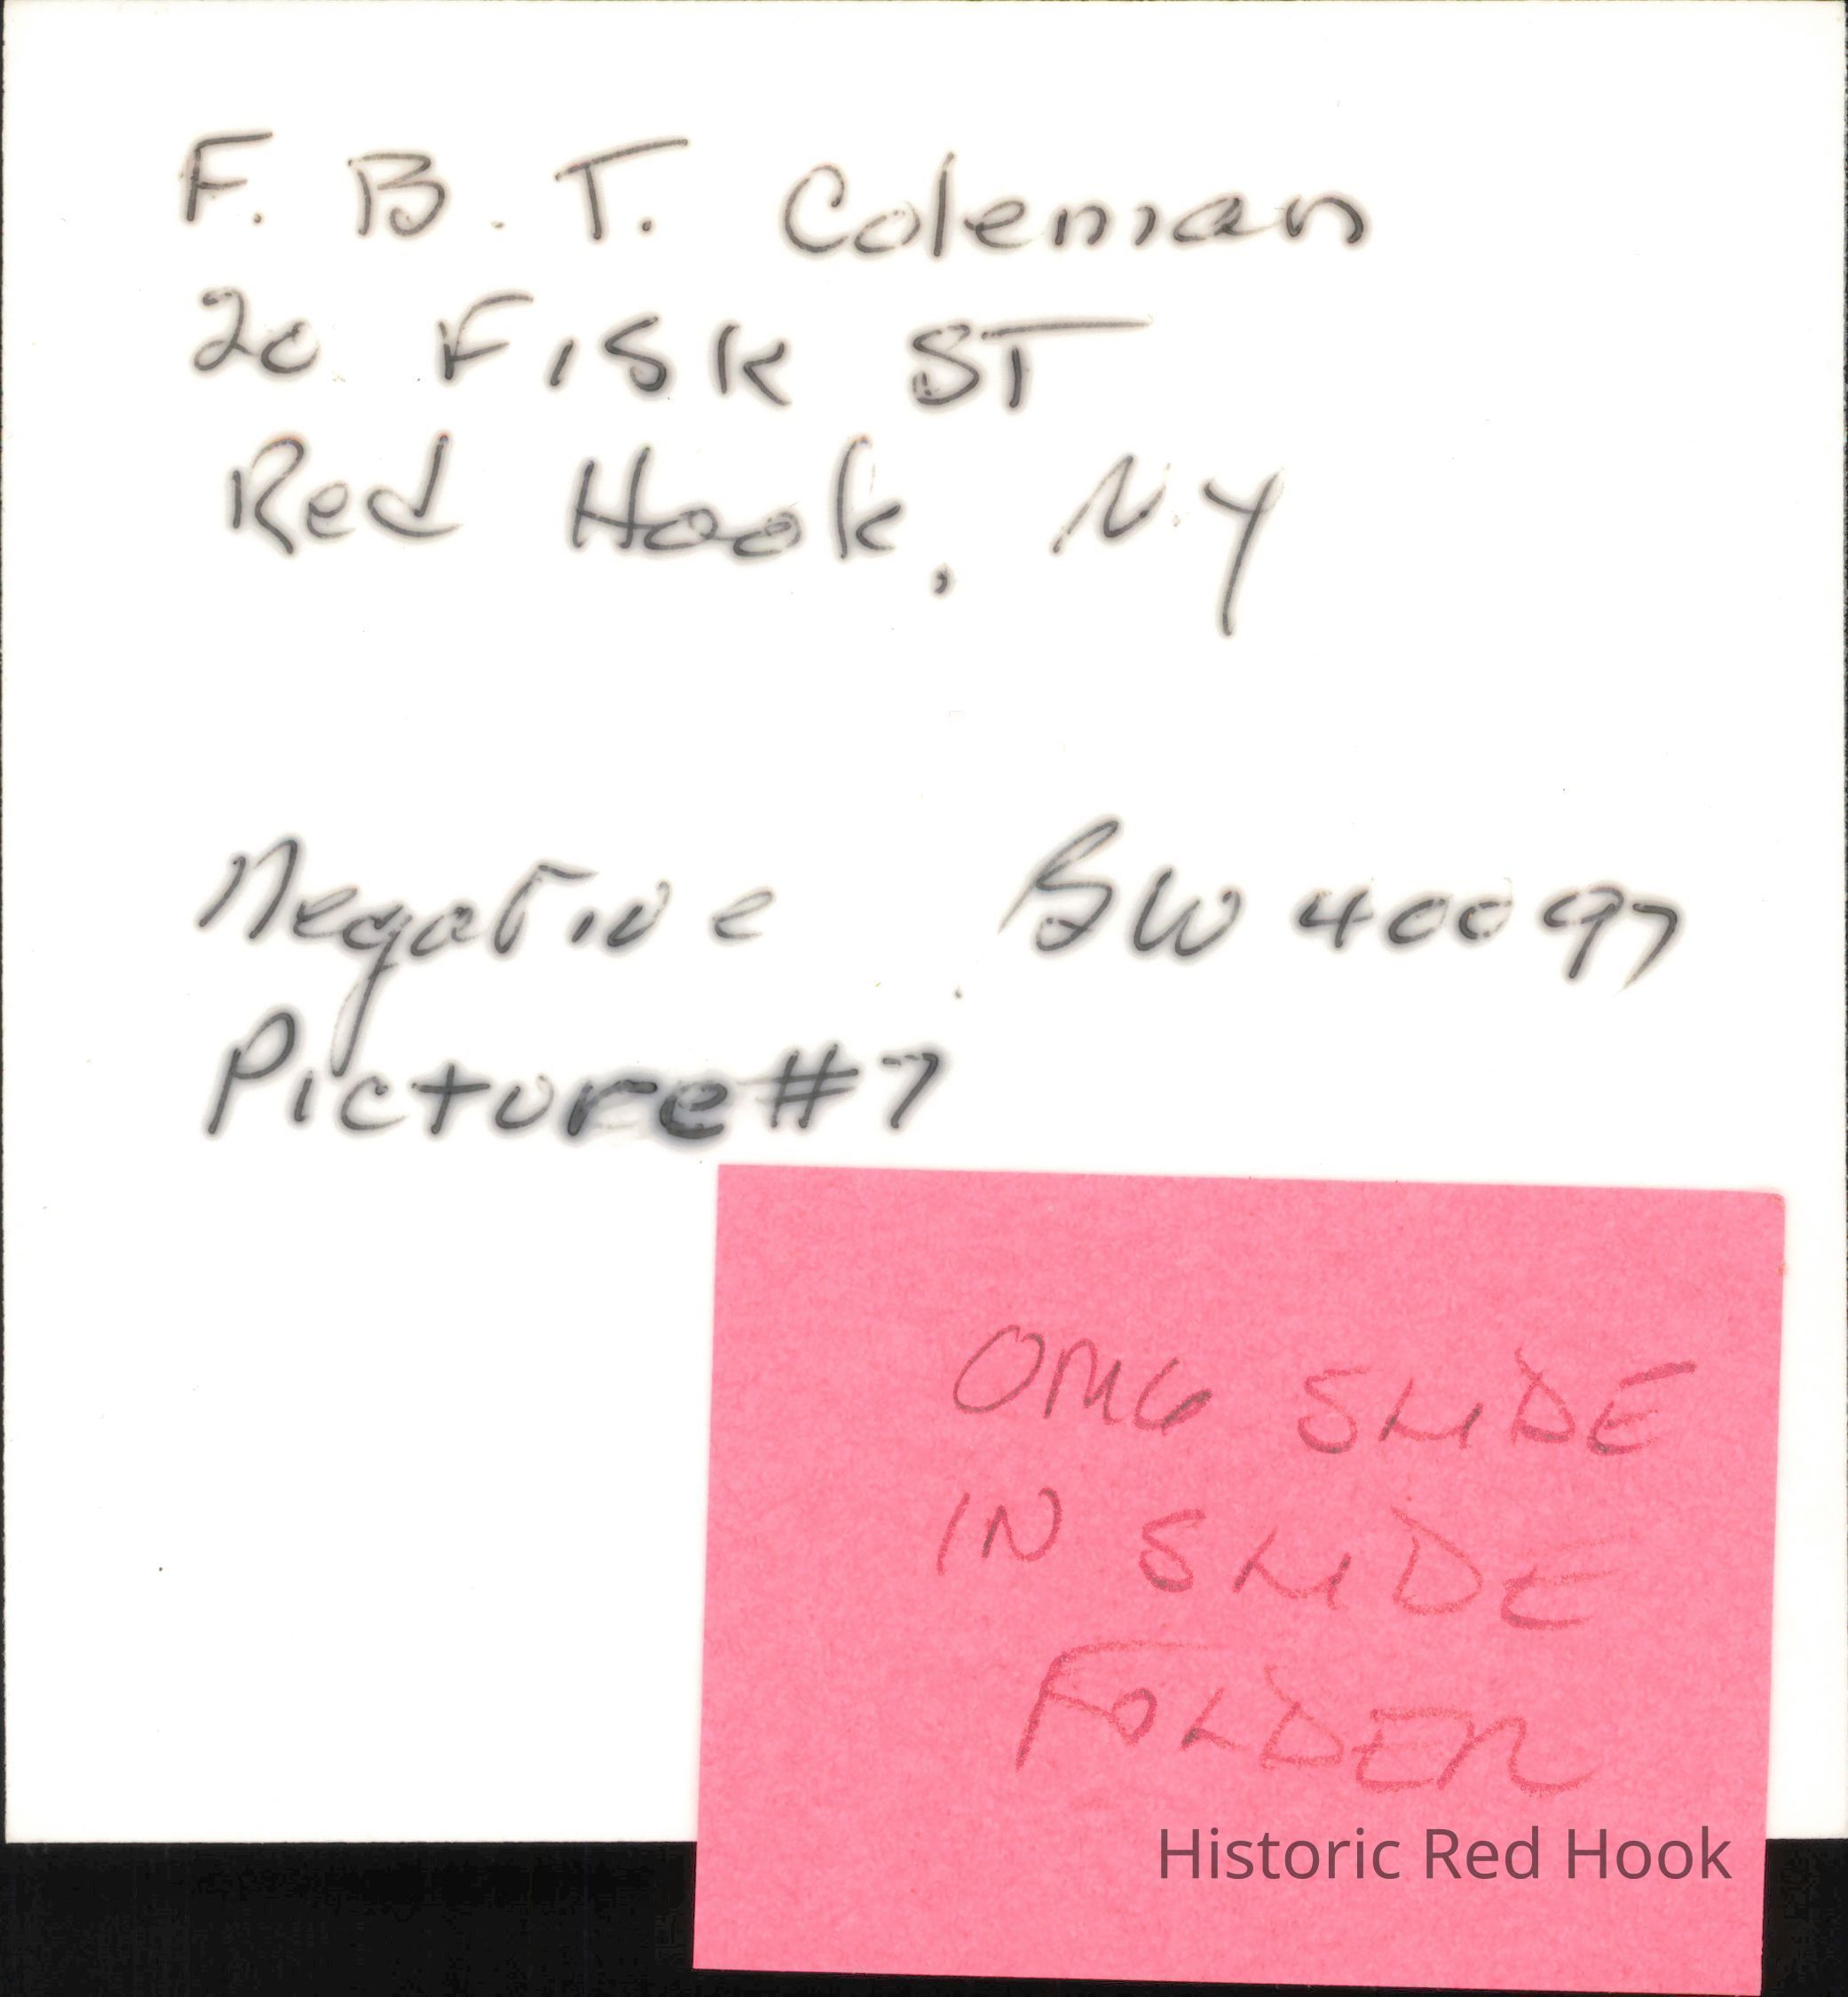 F. B. T. Coleman
20 FISK ST
Red Hook, N.Y
Negative BW 40097
Picture #7
SLIDE
IN SLIDE
FOLDER
Historic Red Hook